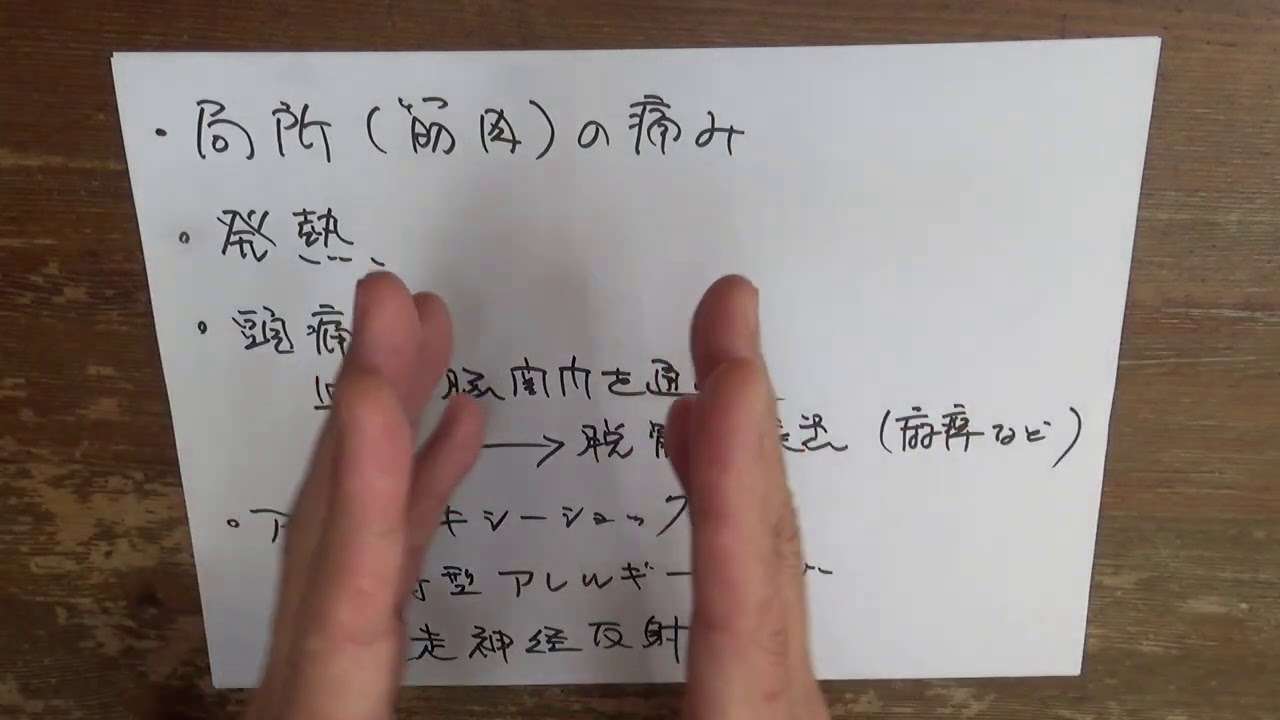 ・局所（筋肉）の痛み
・発熱
・頭痛
脳関門を通
→ 脱髄 疾患（麻痺など）
・ア キシーショック
型アレルギー
走神経反射